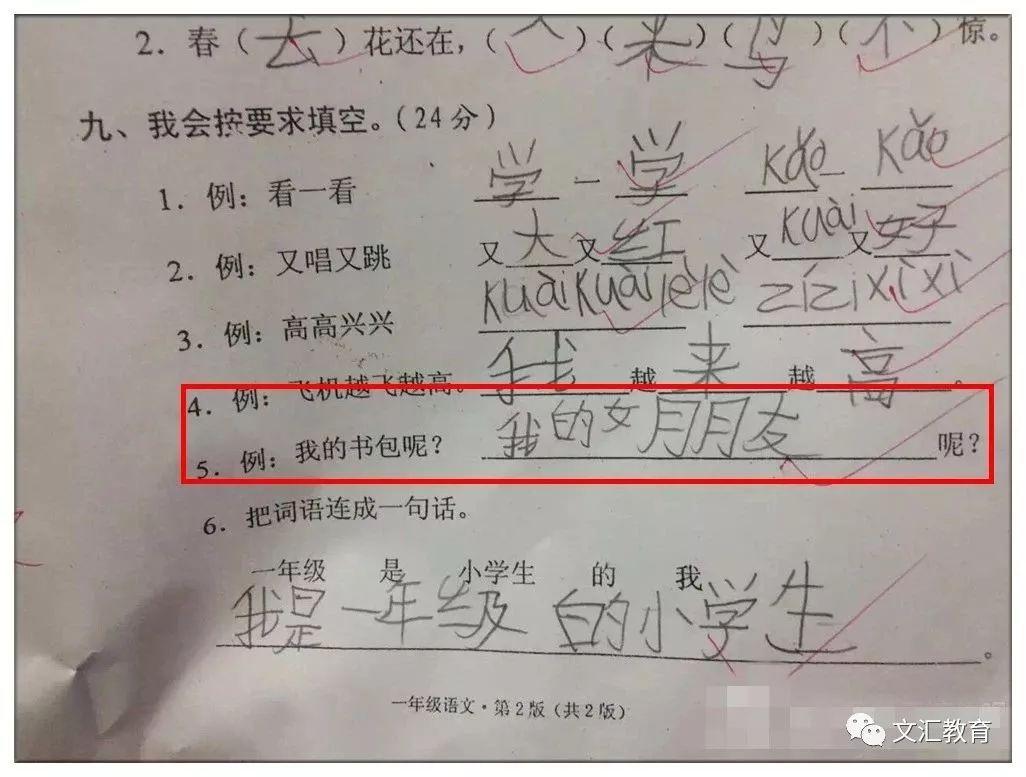 2. 春（去）花还在，（人）（来）（鸟）（不）惊。
九、我会按要求填空。（24分）
1. 例：看一看 学一学 kǎo一kǎo
2. 例：又唱又跳 又大又红 又kuài又好
3. 例：高高兴兴 kuàikuàilèlè zǐzǐxìxì
4. 例：飞机越飞越高。 我越来越高。
5. 例：我的书包呢？ 我的女月月友呢？
6. 把词语连成一句话。
一年级 是 小学生 的 我
我是一年级白的小学生。
一年级语文·第2版（共2版）
文汇教育